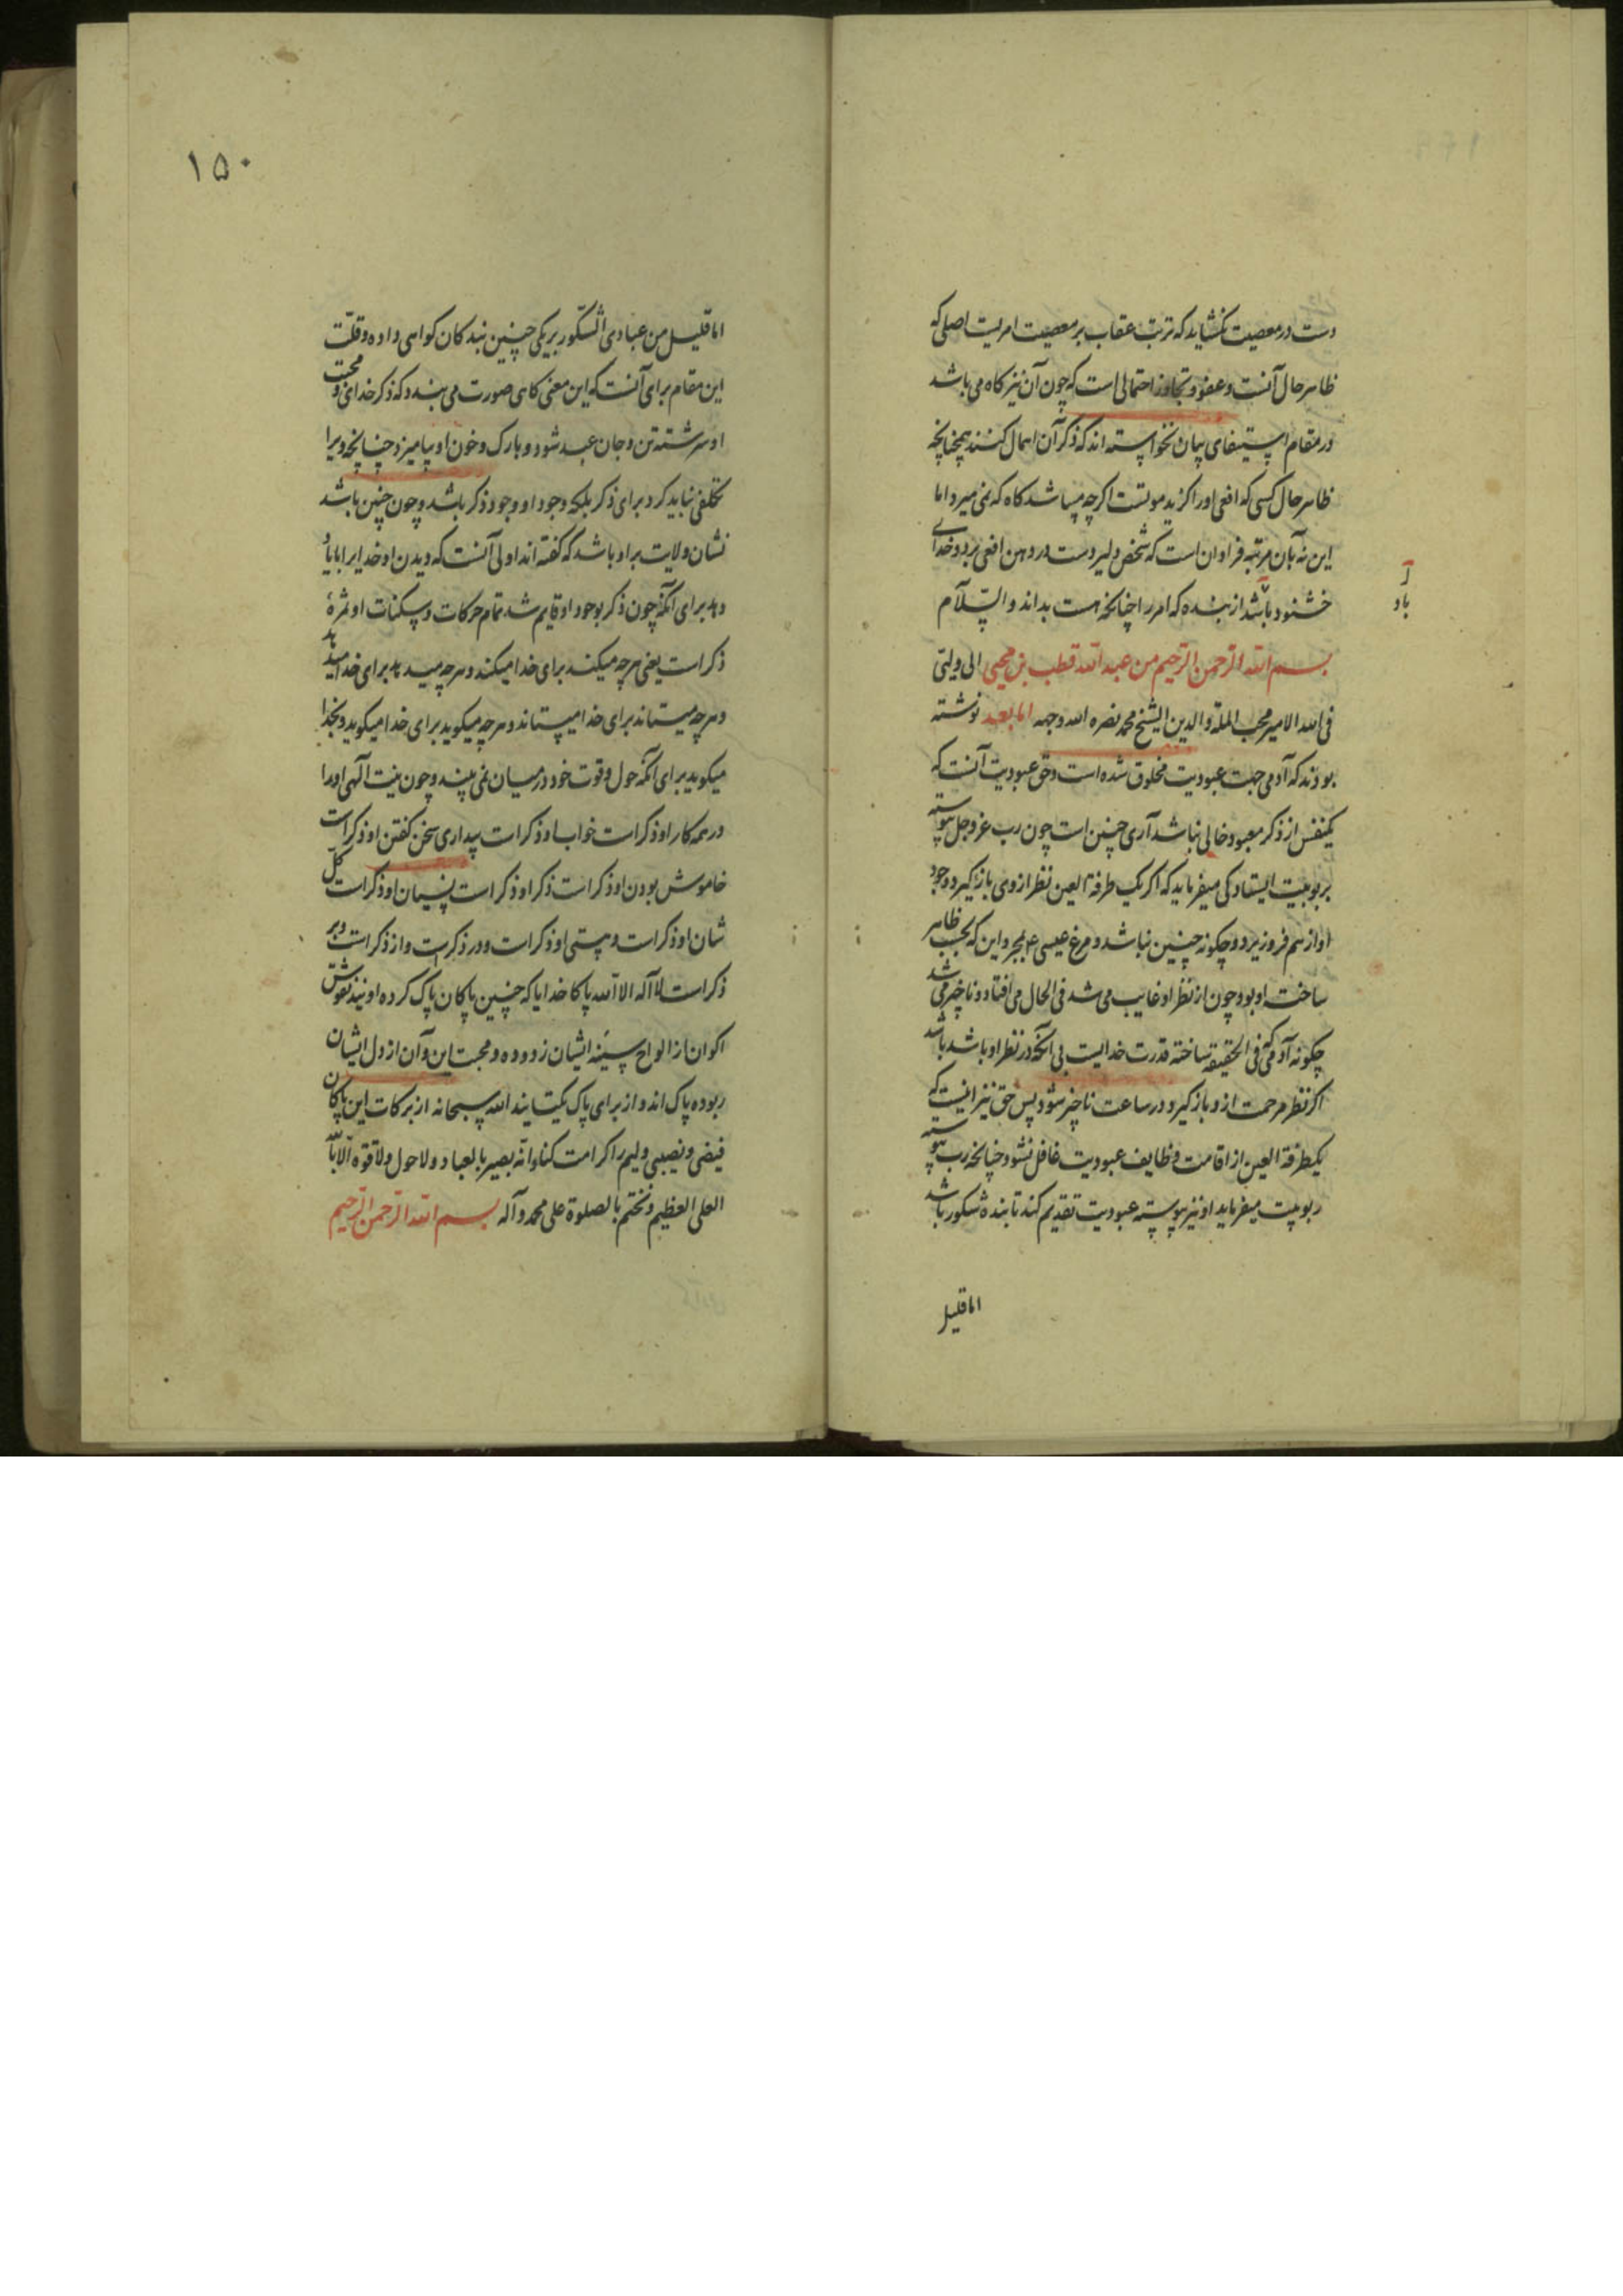 دست در معصیت نکشاید که ترتب عقاب بر معصیت امریست اصلی که
ظاهر حال آنست و عفو و تجاوز احتمالی است که چون آن نیز کاه می باشد
در مقام استیفای بیان نخواسته اند که ذکر آن اهمال کنند همچنانچه
ظاهر حال کسی که افعی اورا کزید موتست اکرچه میباشد کاه که نمی میرد اما
این نه بآن مرتبه فراوان است که شخص دلیر دست در دهن افعی برد و خدای
خشنود باشد از بنده که امر را چنانچه هست بداند والسّلام
بسم الله الرّحمن الرّحیم من عبد الله قطب بن محیی الی ولیّی
فی الله الامیر محب الملة والدین الشیخ محمد نضره الله وجهه اما بعد نوشته
بودند که آدمی جهت عبودیت مخلوق شده است و حق عبودیت آنست که
یکنفس از ذکر معبود خالی نباشد آری چنین است چون رب عز و جل پیوسته
بربوبیت ایستادکی میفرماید که اکر یک طرفة العین نظر از وی بازکیرد وجود
او از هم فرو ریزد و چکونه چنین نباشد و مرغ عیسی ع بمجرد این که بحسب ظاهر
ساخته او بود چون از نظر او غایب می شد فی الحال می افتاد و ناچیز می شد
چکونه آدمی که فی الحقیقه ساخته قدرت خدایست بی آنکه در نظر او باشد باشد
اکر نظر مرحمت ازو بازکیرد در ساعت ناچیز شود پس حق نیز اینست که
یکطرفة العین از اقامت وظایف عبودیت غافل نشود چنانچه رب پیوسته
ربوبیت میفرماید او نیز پیوسته عبودیت تقدیم کند تا بنده شکور باشد
اما قلیل
باد
١٥٠
اما قلیل من عبادی الشّکور بریکی چنین بندکان کواهی داده و قلّت
این مقام برای آنست که این معنی کاهی صورت می بندد که ذکر خدای و محبت
او سرشته تن و جان عبد شود و بارک و خون او بیامیزد چنانچه ویرا
تکلفی نباید کرد برای ذکر بلکه وجود او وجود ذکر باشد و چون چنین باشد
نشان ولایت براو باشد که کفته اند اولی آنست که دیدن او خدایرا بایاد
دهد برای آنکه چون ذکر بوجود او قایم شد تمام حرکات و سکنات او ثمرۀ
ذکر است یعنی هرچه میکند برای خدا میکند و هرچه میدهد برای خدا میدهد
و هرچه میستاند برای خدا میستاند و هرچه میکوید برای خدا میکوید و بخدا
میکوید برای آنکه حول و قوت خود در میان نمی بیند و چون نیت الهی اورا
در همه کار او ذکر است خواب او ذکر است بیداری سخن کفتن او ذکر است
خاموش بودن او ذکر است ذکر او ذکر است نسیان او ذکر است کلّ
شان او ذکر است و هستی او ذکر است و در ذکر است و از ذکر است و بر
ذکر است لا آله الا الله پاکا خدایا که چنین پاکان پاک کرده اویند نقوش
اکوان از الواح سینه ایشان زدوده و محبت این و آن از دل ایشان
ربوده پاک اند و از برای پاک یکتایند الله سبحانه از برکات این پاکان
فیضی و نصیبی ولیم را کرامت کناد انّه بصیر بالعباد و لا حول و لا قوه الّا بالله
العلی العظیم و نختم بالصلوة علی محمد و آله بسم الله الرّحمن الرّحیم